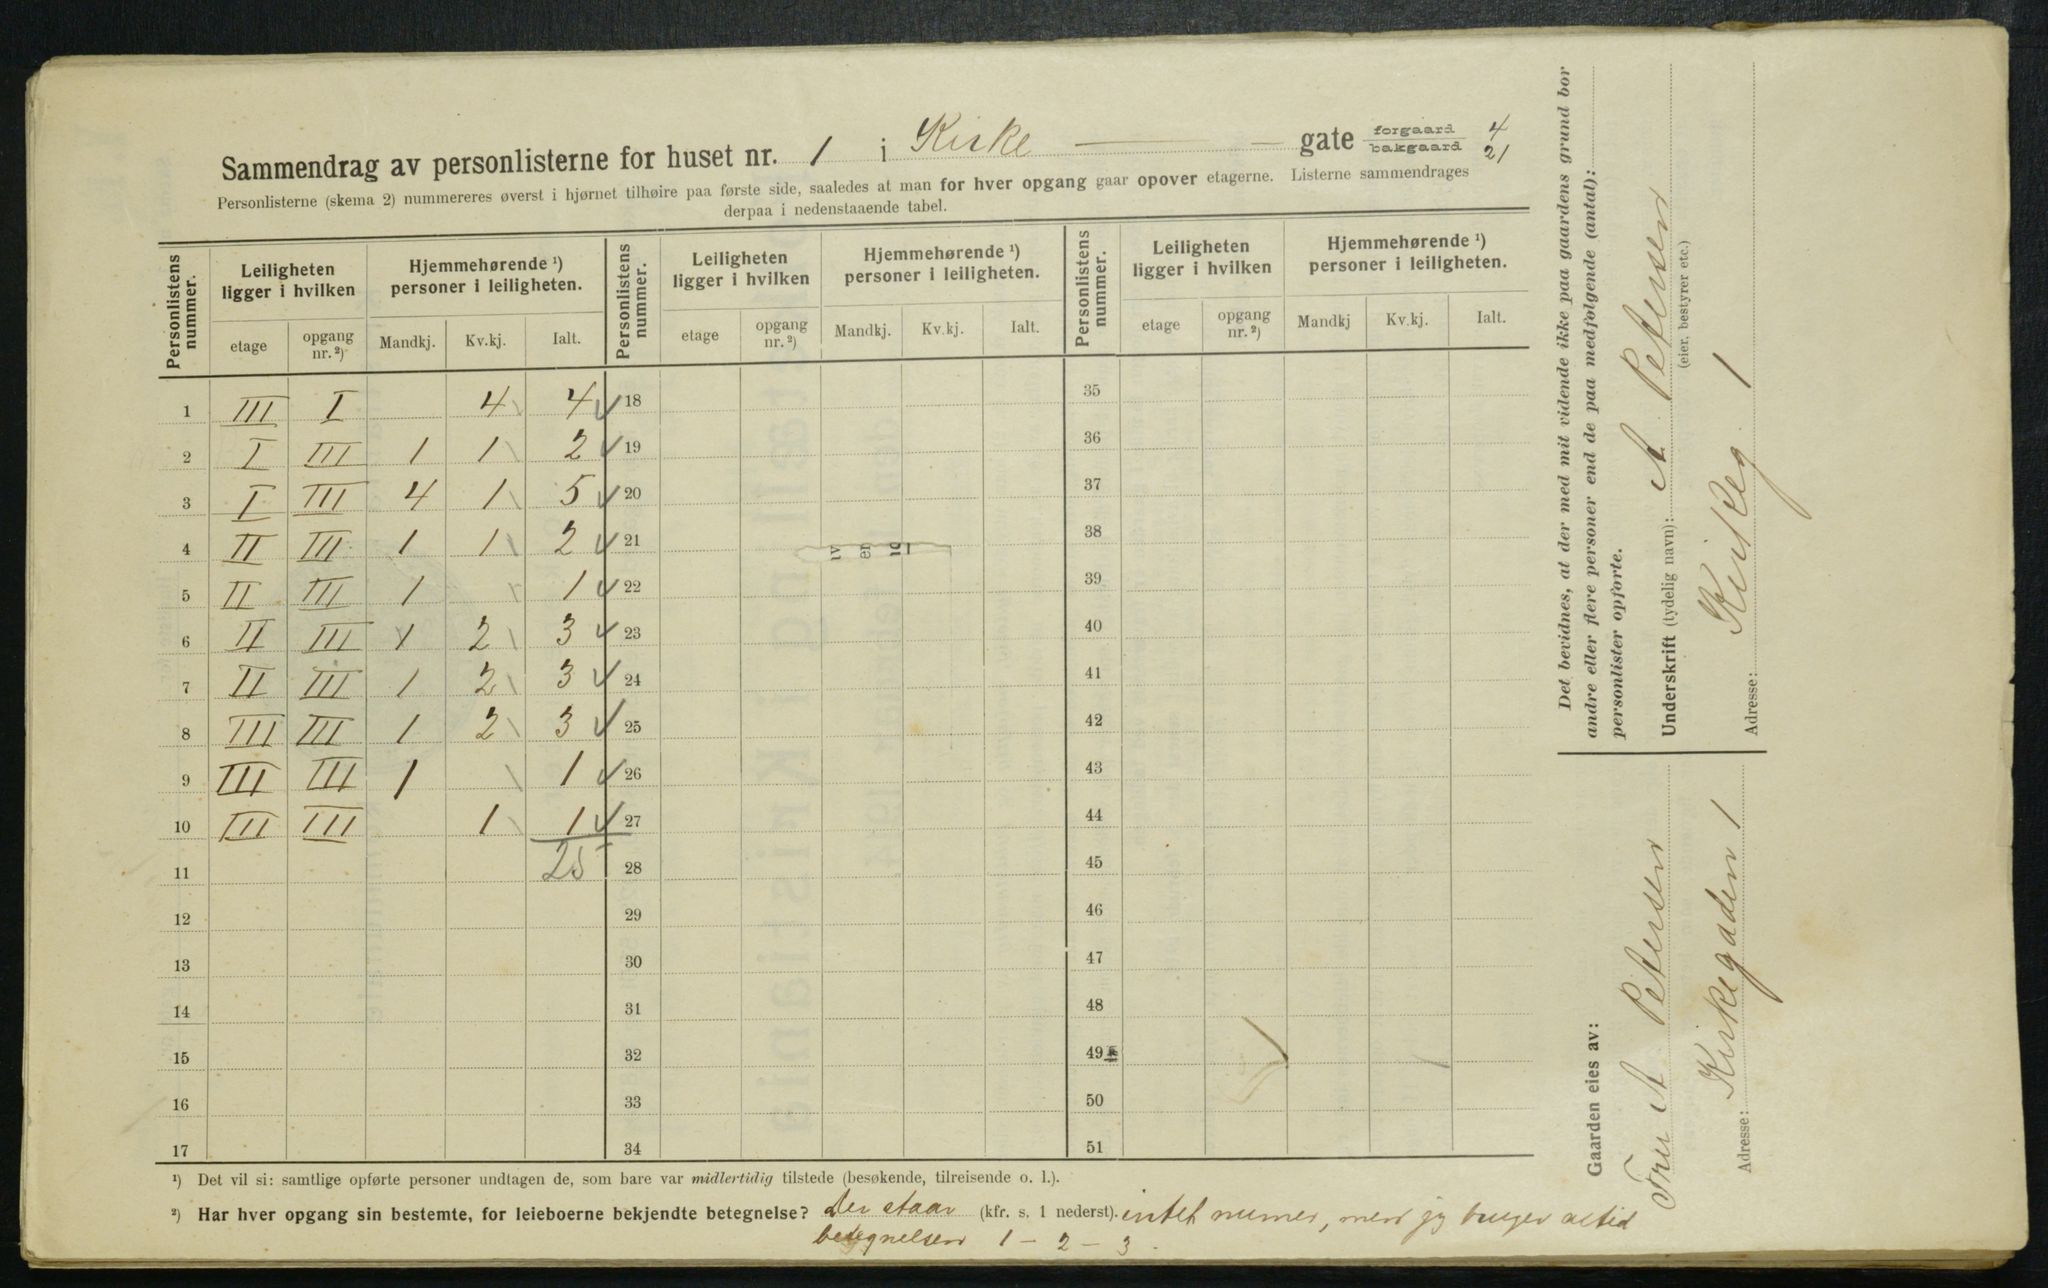 Sammendrag av personlisterne for huset nr. 1 i Kirke — gate forgaard 4
bakgaard 21
Personlisterne (skema 2) nummereres øverst i hjørnet tilhøire paa første side, saaledes at man for hver opgang gaar opover etagerne. Listerne sammendrages
derpaa i nedenstaaende tabel.
Personlistens nummer. Leiligheten ligger i hvilken Hjemmehørende ¹) personer i leiligheten. Personlistens nummer. Leiligheten ligger i hvilken Hjemmehørende ¹) personer i leiligheten. Personlistens nummer. Leiligheten ligger i hvilken Hjemmehørende ¹) personer i leiligheten.
etage opgang nr. ²) Mandkj. Kv.kj. Ialt. etage opgang nr. ²) Mandkj. Kv.kj. Ialt. etage opgang nr. ²) Mandkj Kv.kj. Ialt.
1 III I 4 4 18 35
2 I III 1 1 2 19 36
3 I III 4 1 5 20 37
4 II III 1 1 2 21 38
5 II III 1 1 22 39
6 II III 1 2 3 23 40
7 II III 1 2 3 24 41
8 III III 1 2 3 25 42
9 III III 1 1 26 43
10 III III 1 1 27 44
11 25 28 45
12 29 46
13 30 47
14 31 48
15 32 49
16 33 50
17 34 51
¹) Det vil si: samtlige opførte personer undtagen de, som bare var midlertidig tilstede (besøkende, tilreisende o. l.).
²) Har hver opgang sin bestemte, for leieboerne bekjendte betegnelse? Der staar (kfr. s. 1 nederst). intet numer, men jeg bruger altid
betegnelsen 1 – 2 – 3.
Det bevidnes, at der med mit vidende ikke paa gaardens grund bor
andre eller flere personer end de paa medfølgende (antal):
personlister opførte.
Underskrift (tydelig navn): A Petersen
(eier, bestyrer etc.)
Adresse: Kirkeg 1
Gaarden eies av:
Fru A Petersen
Adresse: Kirkegaden 1